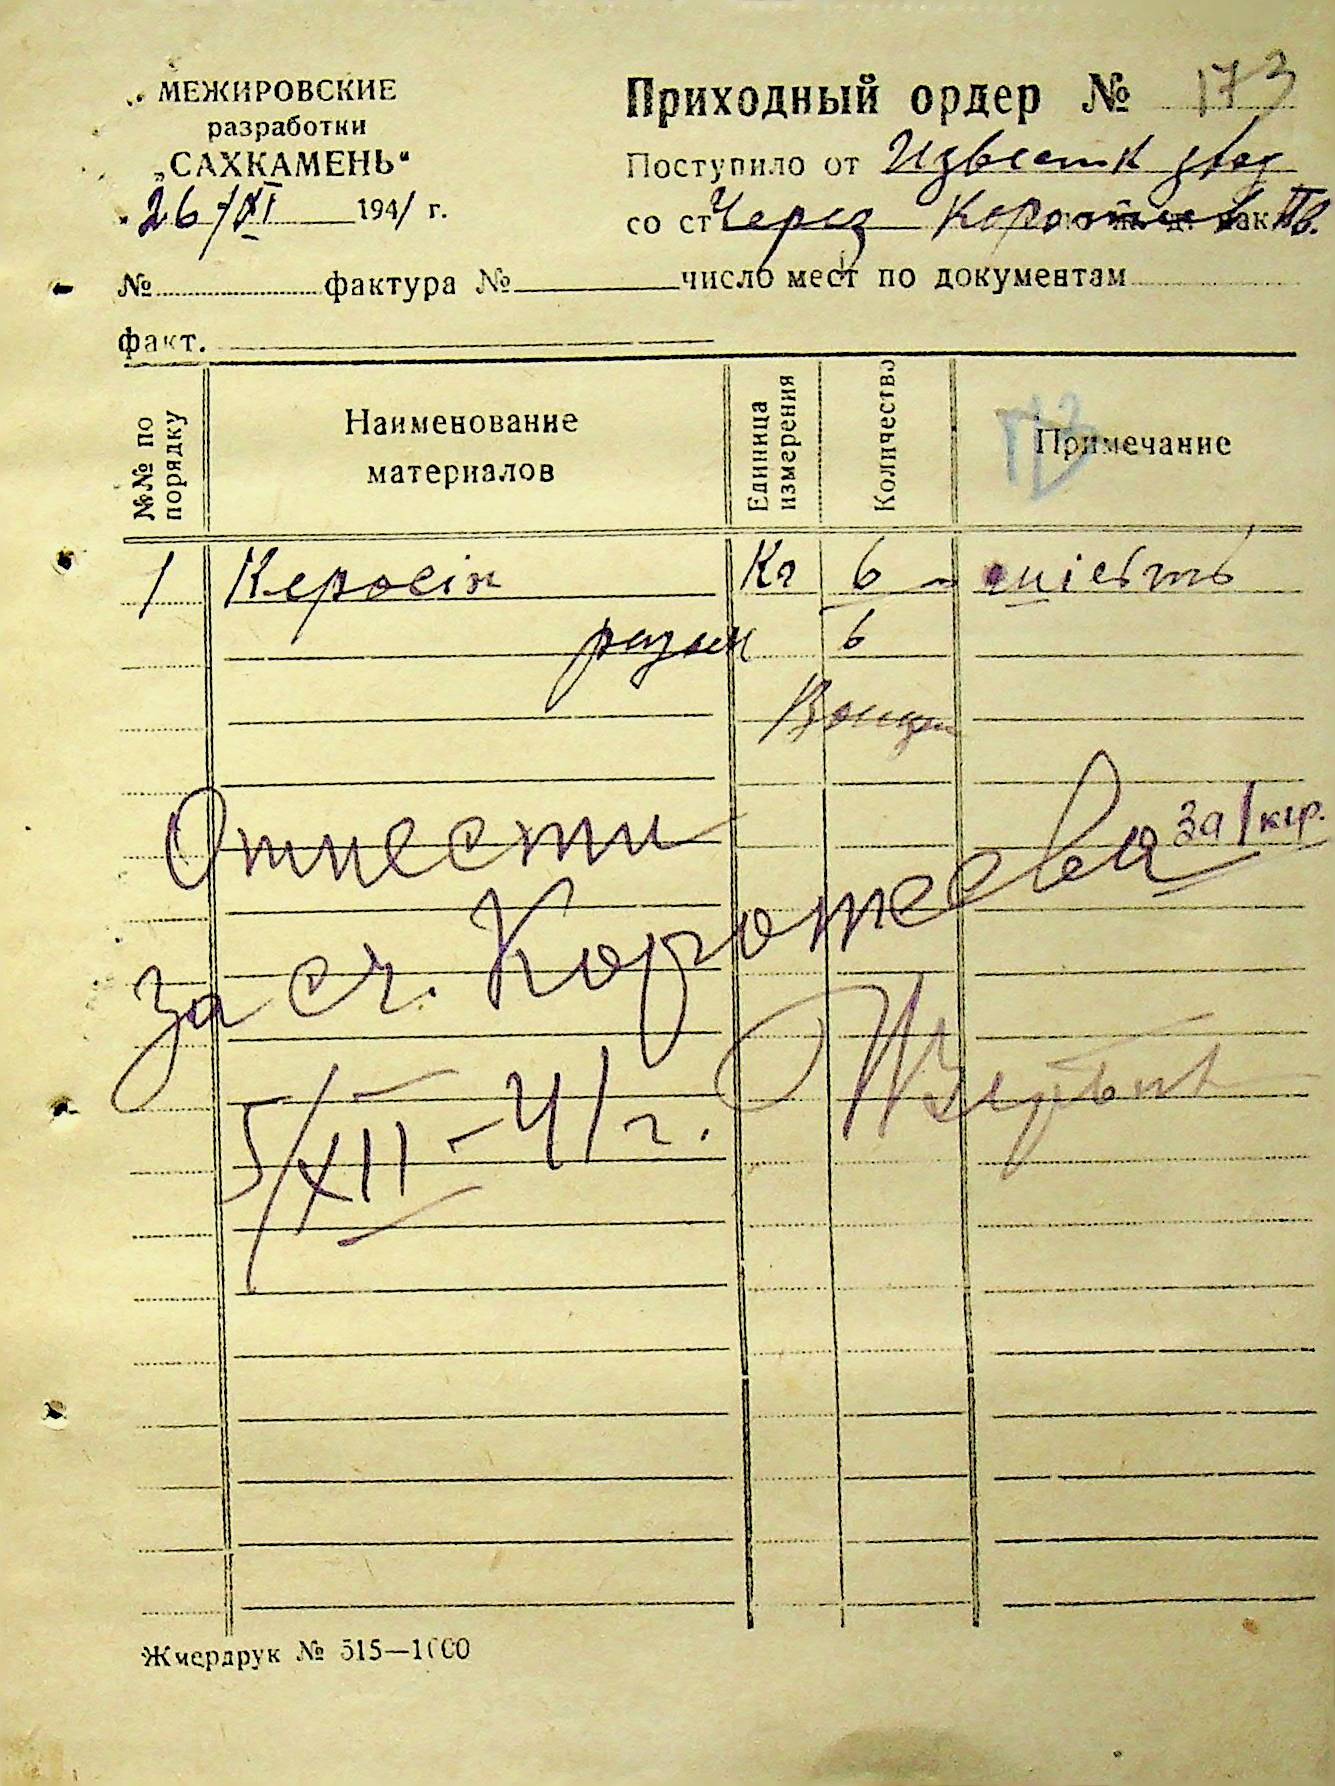 МЕЖИРОВСКИЕ
разработки
„САХКАМЕНЬ“
26/XI 1941 г.
Приходный ордер № 173
Поступило от Известк
со ст Через
№ фактура № число мест по документам
факт.
№№ по порядку
Наименование материалов
Единица измерения
Количество
Примечание
1 Керосін Кг 6 – шість
разом 6
Отнести
за сч. Коротеева за 1 кгр.
5/XII – 41 г.
Жмердрук № 515—1000